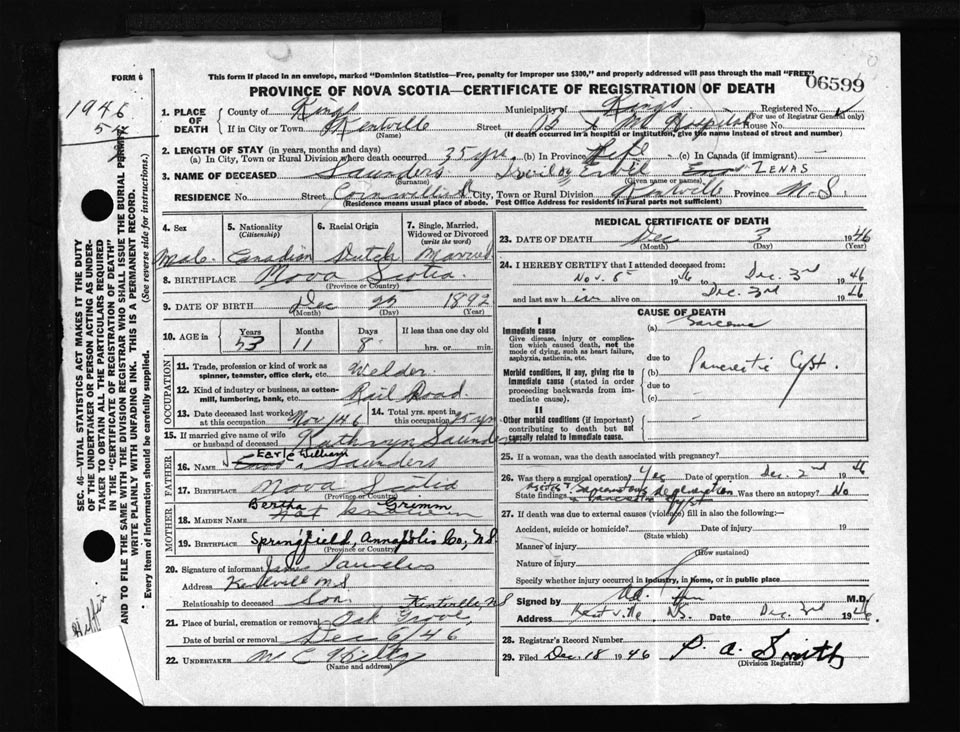 FORM 6
This form if placed in an envelope, marked "Dominion Statistics—Free, penalty for improper use $300," and properly addressed will pass through the mail "FREE"
06599
PROVINCE OF NOVA SCOTIA—CERTIFICATE OF REGISTRATION OF DEATH
1946
1. PLACE OF DEATH
County of Kings Municipality of Kings Registered No.
(For use of Registrar General only)
If in City or Town Kentville Street B & M Hospital House No.
(Name) (If death occurred in a hospital or institution, give the name instead of street and number)
2. LENGTH OF STAY (in years, months and days)
(a) In City, Town or Rural Division where death occurred 35 yrs. (b) In Province Life (c) In Canada (if immigrant) —
3. NAME OF DECEASED Saunders ZENAS
(Surname) (Given name or names)
RESIDENCE No. Street Cornwallis St City, Town or Rural Division Kentville Province N.S
(Residence means usual place of abode. Post Office Address for residents in rural parts not sufficient)
4. Sex 5. Nationality (Citizenship) 6. Racial Origin 7. Single, Married, Widowed or Divorced (write the word)
Male Canadian Dutch Married
8. BIRTHPLACE Nova Scotia
(Province or Country)
9. DATE OF BIRTH Dec 1892
(Month) (Day) (Year)
10. AGE in Years Months Days If less than one day old
53 11 8 hrs. or min.
OCCUPATION
11. Trade, profession or kind of work as spinner, teamster, office clerk, etc. Welder
12. Kind of industry or business, as cotton-mill, lumbering, bank, etc. Rail Road
13. Date deceased last worked at this occupation Nov/46 14. Total yrs. spent in this occupation 25 yrs
15. If married give name of wife or husband of deceased Kathryn Saunders
FATHER
Earle William
16. NAME Saunders
17. BIRTHPLACE Nova Scotia
(Province or Country)
MOTHER
Bertha Grimm
18. MAIDEN NAME
19. BIRTHPLACE Springfield, Annapolis Co., N.S
(Province or Country)
20. Signature of informant James Saunders
Address Kentville N.S
Relationship to deceased Son
Kentville N S
21. Place of burial, cremation or removal Oak Grove
Date of burial or removal Dec 6/46
22. UNDERTAKER
(Name and address)
MEDICAL CERTIFICATE OF DEATH
23. DATE OF DEATH Dec 3 1946
(Month) (Day) (Year)
24. I HEREBY CERTIFY that I attended deceased from:
Nov. 8 1946 to Dec. 3rd 1946
and last saw him alive on Dec. 3rd 1946
CAUSE OF DEATH
I
Immediate cause (a) Sarcoma
Give disease, injury or complication which caused death, not the mode of dying, such as heart failure, asphyxia, asthenia, etc.
due to Pancreatic Cyst.
Morbid conditions, if any, giving rise to immediate cause (stated in order proceeding backwards from immediate cause).
(b)
due to
(c)
II
Other morbid conditions (if important) contributing to death but not causally related to immediate cause.
25. If a woman, was the death associated with pregnancy?
26. Was there a surgical operation? Yes Date of operation Dec. 2nd 1946
State findings Was there an autopsy? No
27. If death was due to external causes (violence) fill in also the following:—
Accident, suicide or homicide? Date of injury 19
(State which)
Manner of injury
(How sustained)
Nature of injury
Specify whether injury occurred in industry, in home, or in public place
Signed by M.D.
Address Kentville, N.S. Date Dec. 3rd 1946
28. Registrar's Record Number
29. Filed Dec. 18 1946 P. A. Smith
(Division Registrar)
SEC. 46—VITAL STATISTICS ACT MAKES IT THE DUTY
OF THE UNDERTAKER OR PERSON ACTING AS UNDER-
TAKER TO OBTAIN ALL THE PARTICULARS REQUIRED
IN THE "CERTIFICATE OF REGISTRATION OF DEATH"
AND TO FILE THE SAME WITH THE DIVISION REGISTRAR WHO SHALL ISSUE THE BURIAL PERMIT
WRITE PLAINLY WITH UNFADING INK. THIS IS A PERMANENT RECORD.
Every item of information should be carefully supplied. (See reverse side for instructions.)